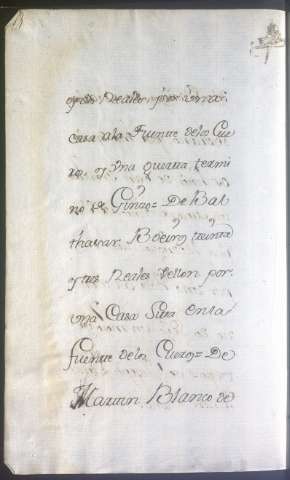 y seis Reales por una
casa a la Fuente de los Cue
ros, y una quarta termi
no de De Bal
thasar treinta
y tres Reales Vellon por
una Casa Sita en la
fuente de los Cueros = De
Martin Blanco de